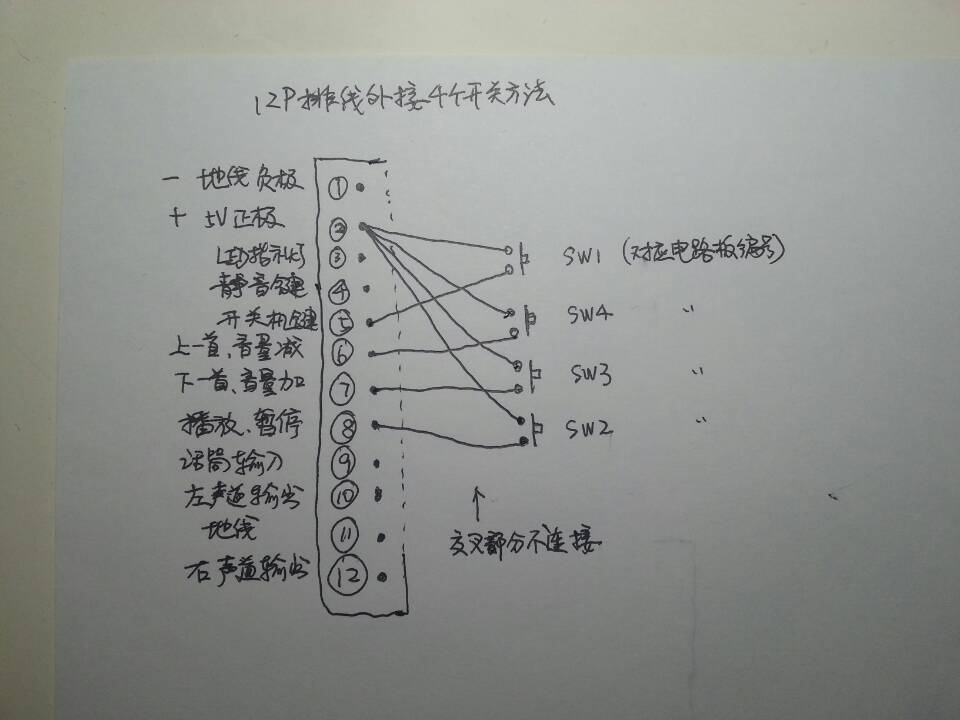 12P排线外接4个开关方法
— 地线负极 ①
+ 5V正极 ②
LED指示灯 ③
静音键 ④
开关机键 ⑤
上一首、音量减 ⑥
下一首、音量加 ⑦
播放、暂停 ⑧
话筒输入 ⑨
左声道输出 ⑩
地线 ⑪
右声道输出 ⑫
SW1 (对应电路板编号)
SW4 〃
SW3 〃
SW2 〃
↑
交叉部分不连接